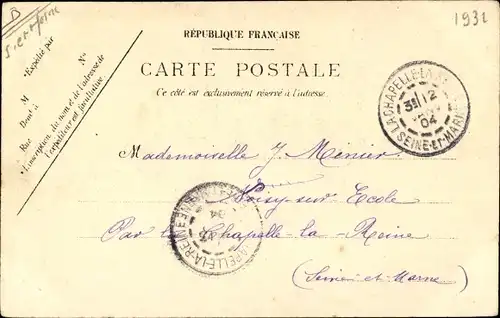 B
1932
RÉPUBLIQUE FRANÇAISE
CARTE POSTALE
Ce côté est exclusivement réservé à l'adresse.
*Expédié par
M
Dem¹ à
Rue
N°
*L'inscription du nom et de l'adresse de
l'expéditeur est facultative.
LA CHAPELLE-LA-R
3E 12
04
SEINE-ET-MARNE
Mademoiselle J. Menier
Noisy-sur-Ecole
Par la Chapelle-la-Reine
(Seine-et-Marne)
CHAPELLE-LA-REINE
04